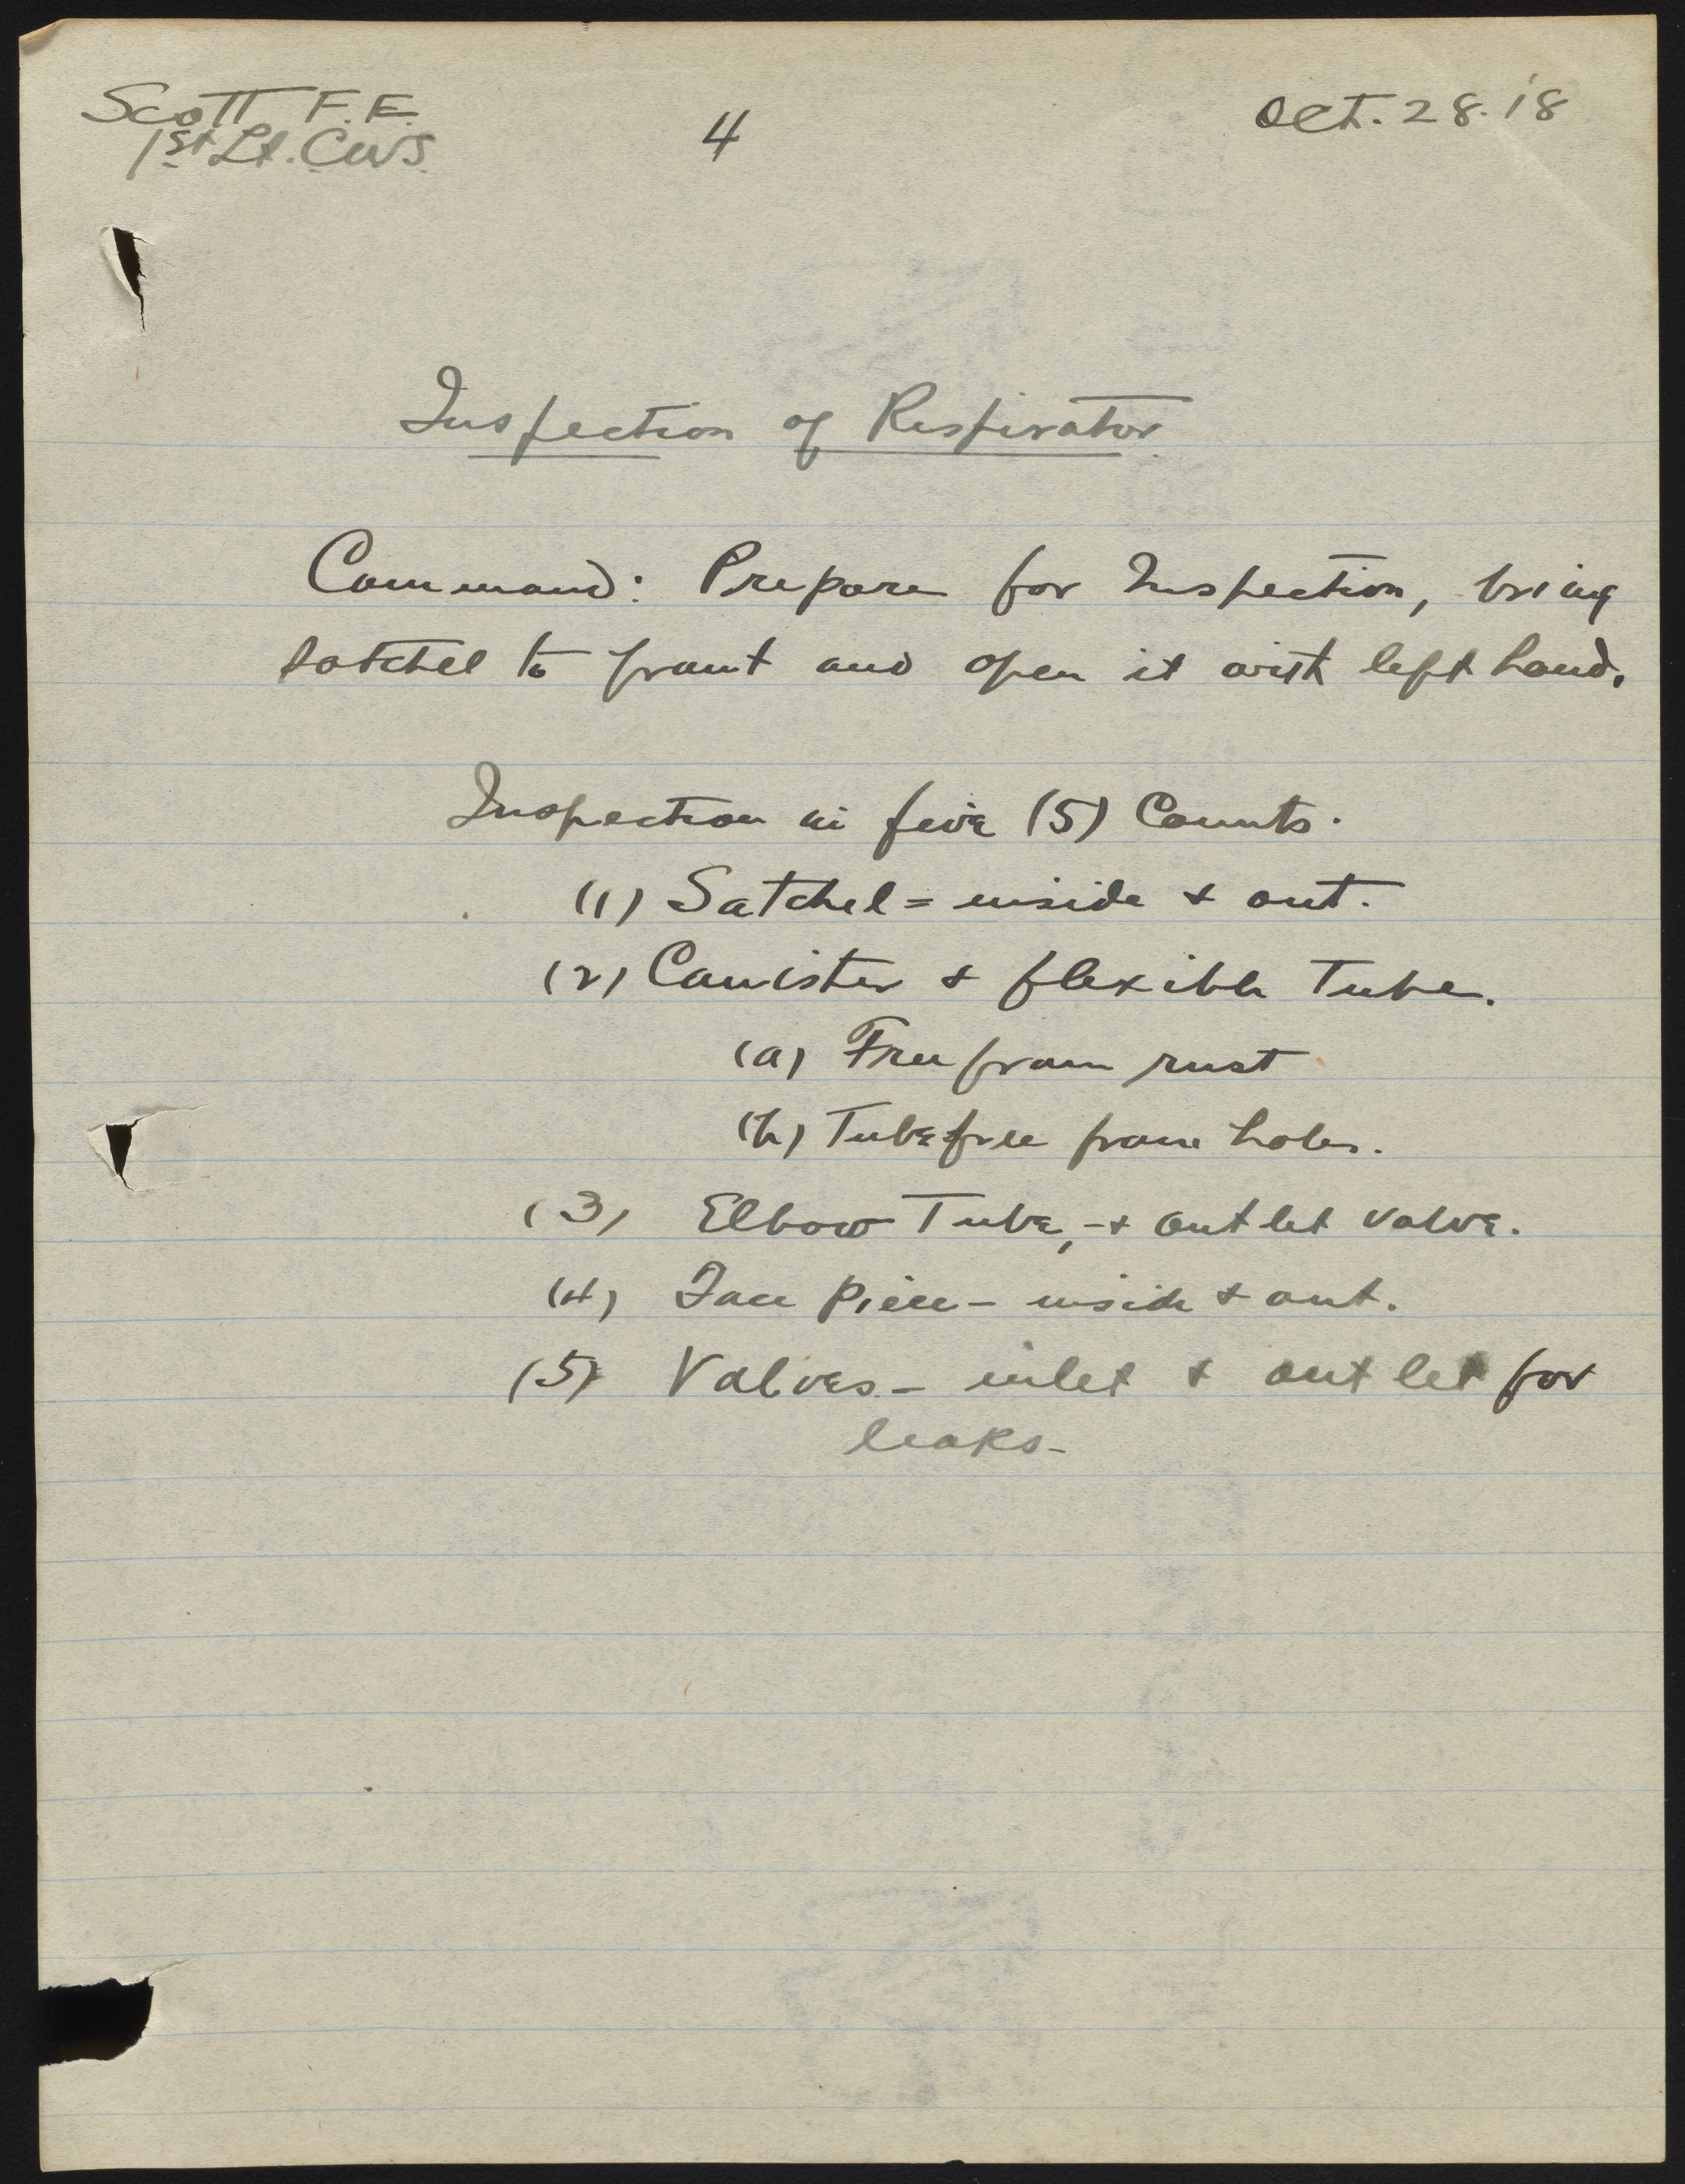 Scott F.E.
1st Lt. CWS.
4
Oct. 28. '18
Inspection of Respirator.
Command: Prepare for Inspection, bring
satchel to front and open it with left hand.
Inspection in five (5) Counts.
(1) Satchel = inside & out.
(2) Canister & flexible Tube.
(a) Free from rust
(b) Tube free from holes.
(3) Elbow Tube, - & outlet valve.
(4) Face piece - inside & out.
(5) Valves - inlet & outlet for
leaks -